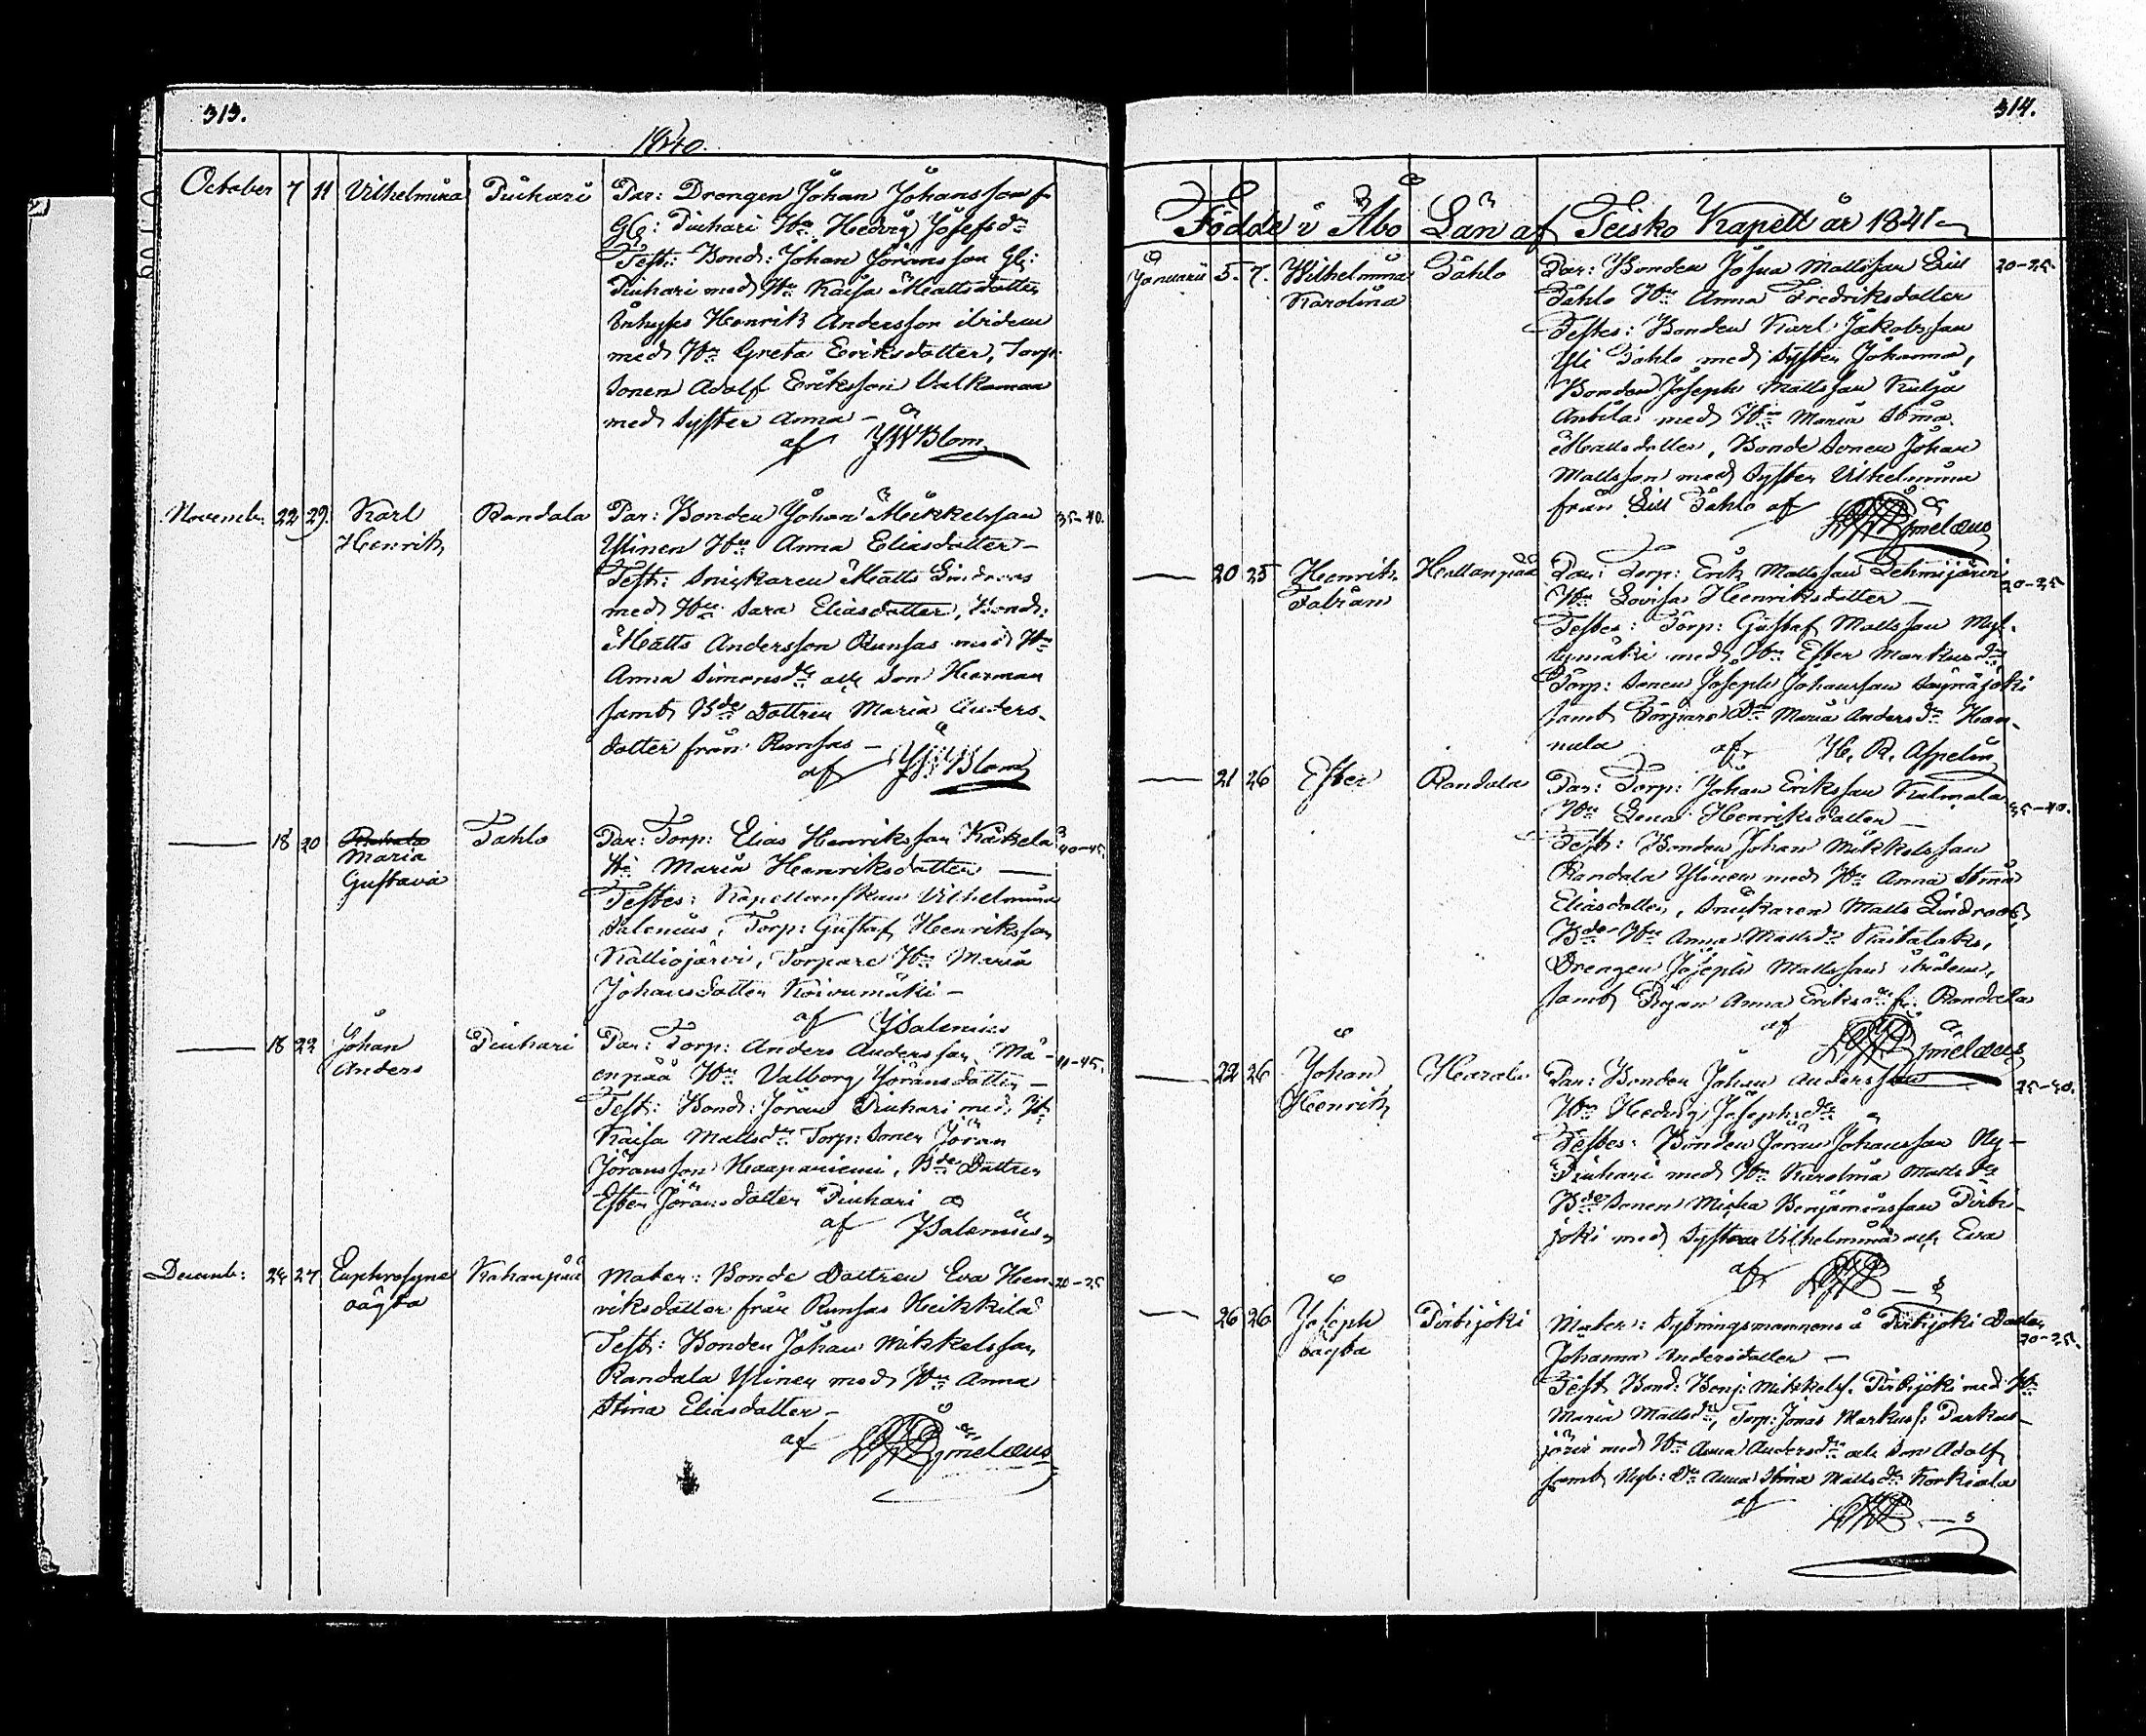 313.
1840.
October 7 11 Vilhelmina Piuhari Par: Drengen Johan Johansson fr.
Gl: Piuhari H:u Hedvig Josefsd:r
Test: Bond: Johan Jöransson Gl:
Piuhari med H:u Kaisa Mattsdotter
Inhyses Henrik Andersson ibidem
med H:u Greta Eriksdotter, Torp:
Sonen Adolf Eriksson Valkamaa
med syster Anna –
af JWBlom
Novemb: 22 29 Karl Randala Par: Bonden Johan Mickelsson 35–40.
Henrik Ylinen H:u Anna Eliasdotter –
Test: Snickaren Matts Lindroos
med H:u Sara Eliasdotter, Bond:
Matts Andersson Runsas med H:u
Anna Simonsd:r och Son Herman
samt B:de Dottren Maria Anders-
dotter från Runsas –
af JWBlom
— 18 20 Maria Tahlo Par: Torp: Elias Henriksson Käkelä 40–45.
Gustava H:u Maria Henriksdotter —
Testes: Kapellansfrun Vilhelmina
Salenius, Torp: Gustaf Henriksson
Kalliojärvi, Torpare H:u Maria
Johansdotter Koivumäki –
af JSalenius
— 18 22 Johan Piuhari Par: Torp: Anders Andersson Mä- 40–45.
Anders enpää H:u Valborg Jöransdotter –
Test: Bond: Jöran Piuhari med H:u
Kaisa Mattsd:r Torp: Sonen Jöran
Jöransson Haapaniemi, B:de Dottren
Ester Jöransdotter Piuhari
af JSalenius
Decemb: 24 27 Euphrosyne Kahanpää Mater: Bonde Dottren Eva Hen- 20–25
oägta riksdotter från Runsas Heikkilä
Test: Bonden Johan Mikkelsson
Randala Ylinen med H:u Anna
Stina Eliasdotter –
af Gmelæus
314.
Födde i Åbo Län af Teisko Kapell år 1841
Januarii 5. 7. Wilhelmina Tahlo Par: Bonden Josua Mattsson Lill 20–25.
Karolina Tahlo H:u Anna Fredriksdotter
Testes: Bonden Karl Jakobsson
Yli Tahlo med syster Johanna,
Bonden Joseph Mattsson Kulja
Anttila med H:u Maria Stina
Mattsdotter, Bonde Sonen Johan
Mattsson med Syster Vilhelmina
från Lill Tahlo af Gmelæus
— 20 25 Henrik Hallanpää Par: Torp: Erik Mattsson Lehmijärvi 20–25
Fabian H:u Lovisa Henriksdotter –
Testes: Torp: Gustaf Mattsson Myl-
lymäki med H:u Ester Markusd:r
Torp: Sonen Joseph Johansson Saynäjoki
samt Torpare D:r Maria Andersd:r Han-
nula af H. R. Aspelin
— 21 26 Ester Randala Par: Torp: Johan Eriksson Kulmala 35–40.
H:u Lena Henriksdotter –
Test: Bonden Johan Mikkelsson
Randala Ylinen med H:u Anna Stina
Eliasdotter, Snickaren Matts Lindroos,
B:de H:u Anna Mattsd:r Kaitalaks,
Drengen Joseph Mattsson ibidem,
samt Pigan Anna Eriksd:r fr. Randala
af Gmelæus
— 22 26 Johan Harala Par: Bonden Johan Andersson 25–30.
Henrik H:u Hedvig Josephsd:r
Testes: Bonden Jöran Johansson Ny-
Piuhari med H:u Karolina Mattsd:r
B:de Sonen Micka Benjaminsson Pirtti-
joki med Systrar Vilhelmina och Eva
af
— 26 26 Joseph Pirttijoki Mater: Sytningsmannens å Pirttijoki Dotter 20–25.
oägta Johanna Andersdotter –
Test Bond: Benj: Mikkelss. Pirttijoki med H:u
Maria Mattsd:r, Torp: Jonas Markuss: Parkus-
järvi med H:u Anna Andersd:r och Son Adolf
samt Nyb: D:r Anna Stina Mattsd:r Korkiala
af